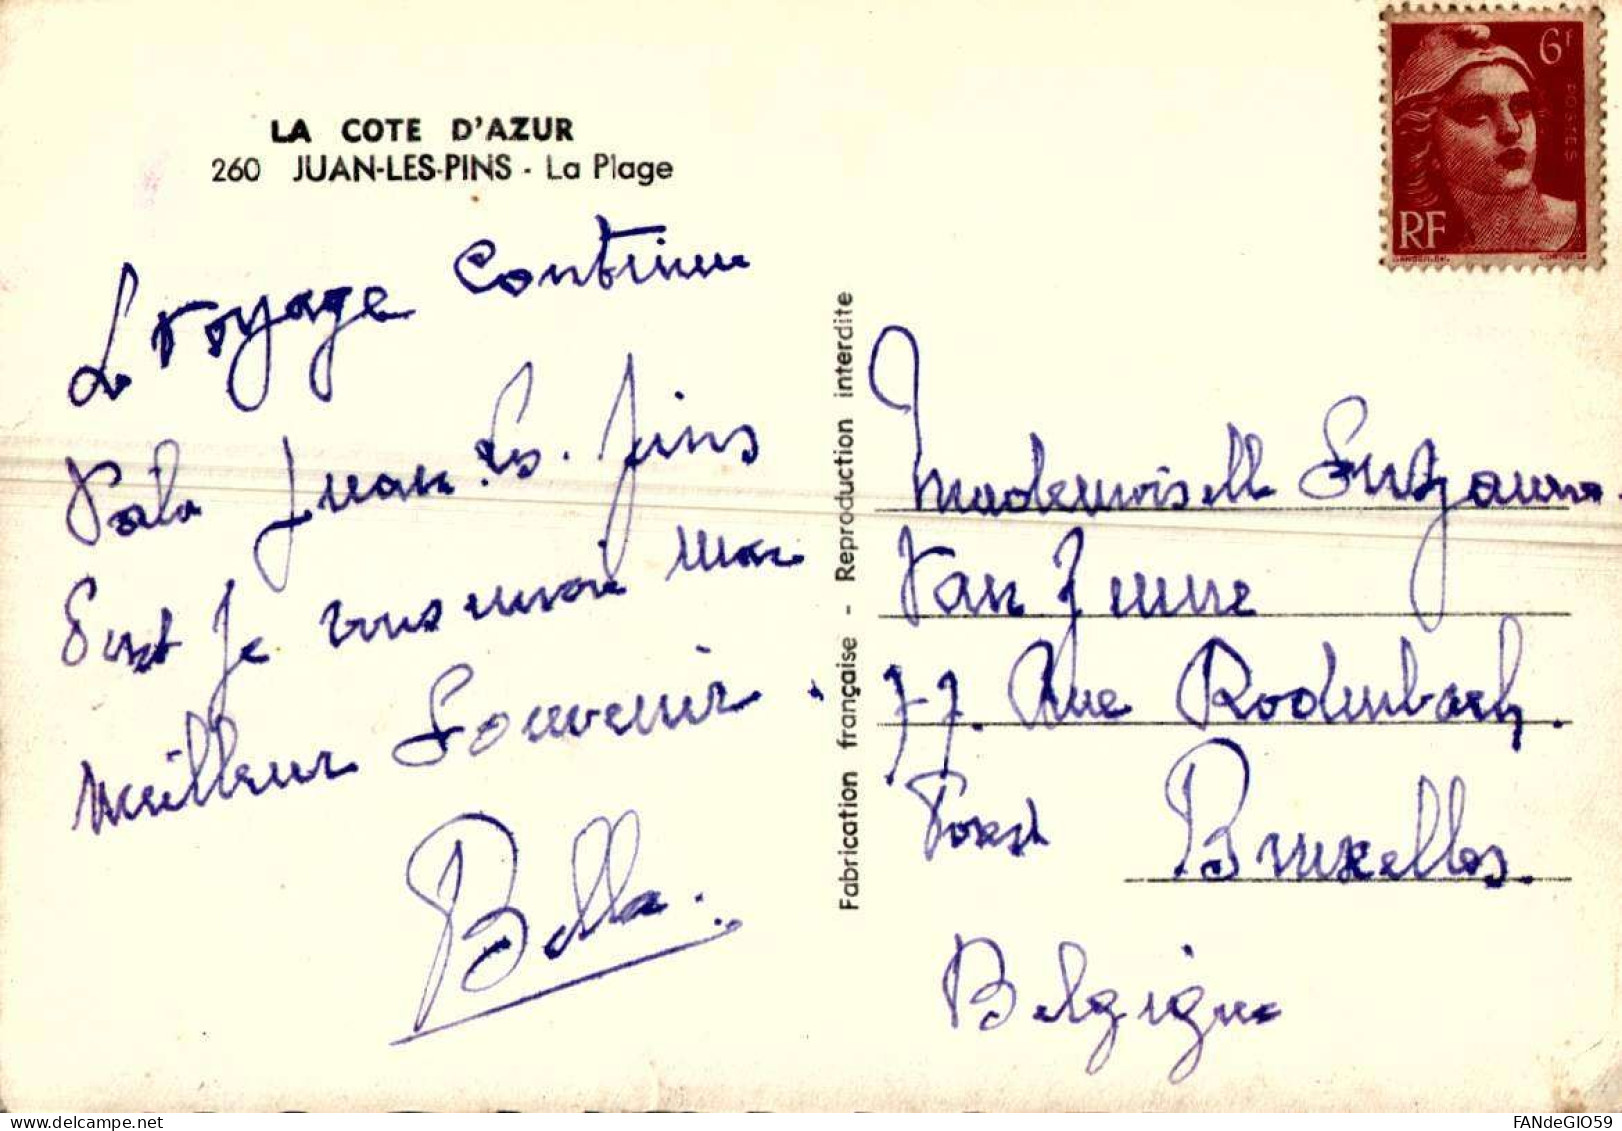 LA COTE D'AZUR
260 JUAN-LES-PINS - La Plage
Le voyage Continue
Voila Juan-Les-Pins
Je vous envoie mon
meilleur Souvenir.
Bella.
Fabrication française - Reproduction interdite
6F
POSTES
RF
Mademoiselle Sutzanne
Van
77. Rue Rodenbach.
Forest Bruxelles.
Belgique
FANdeGIO59